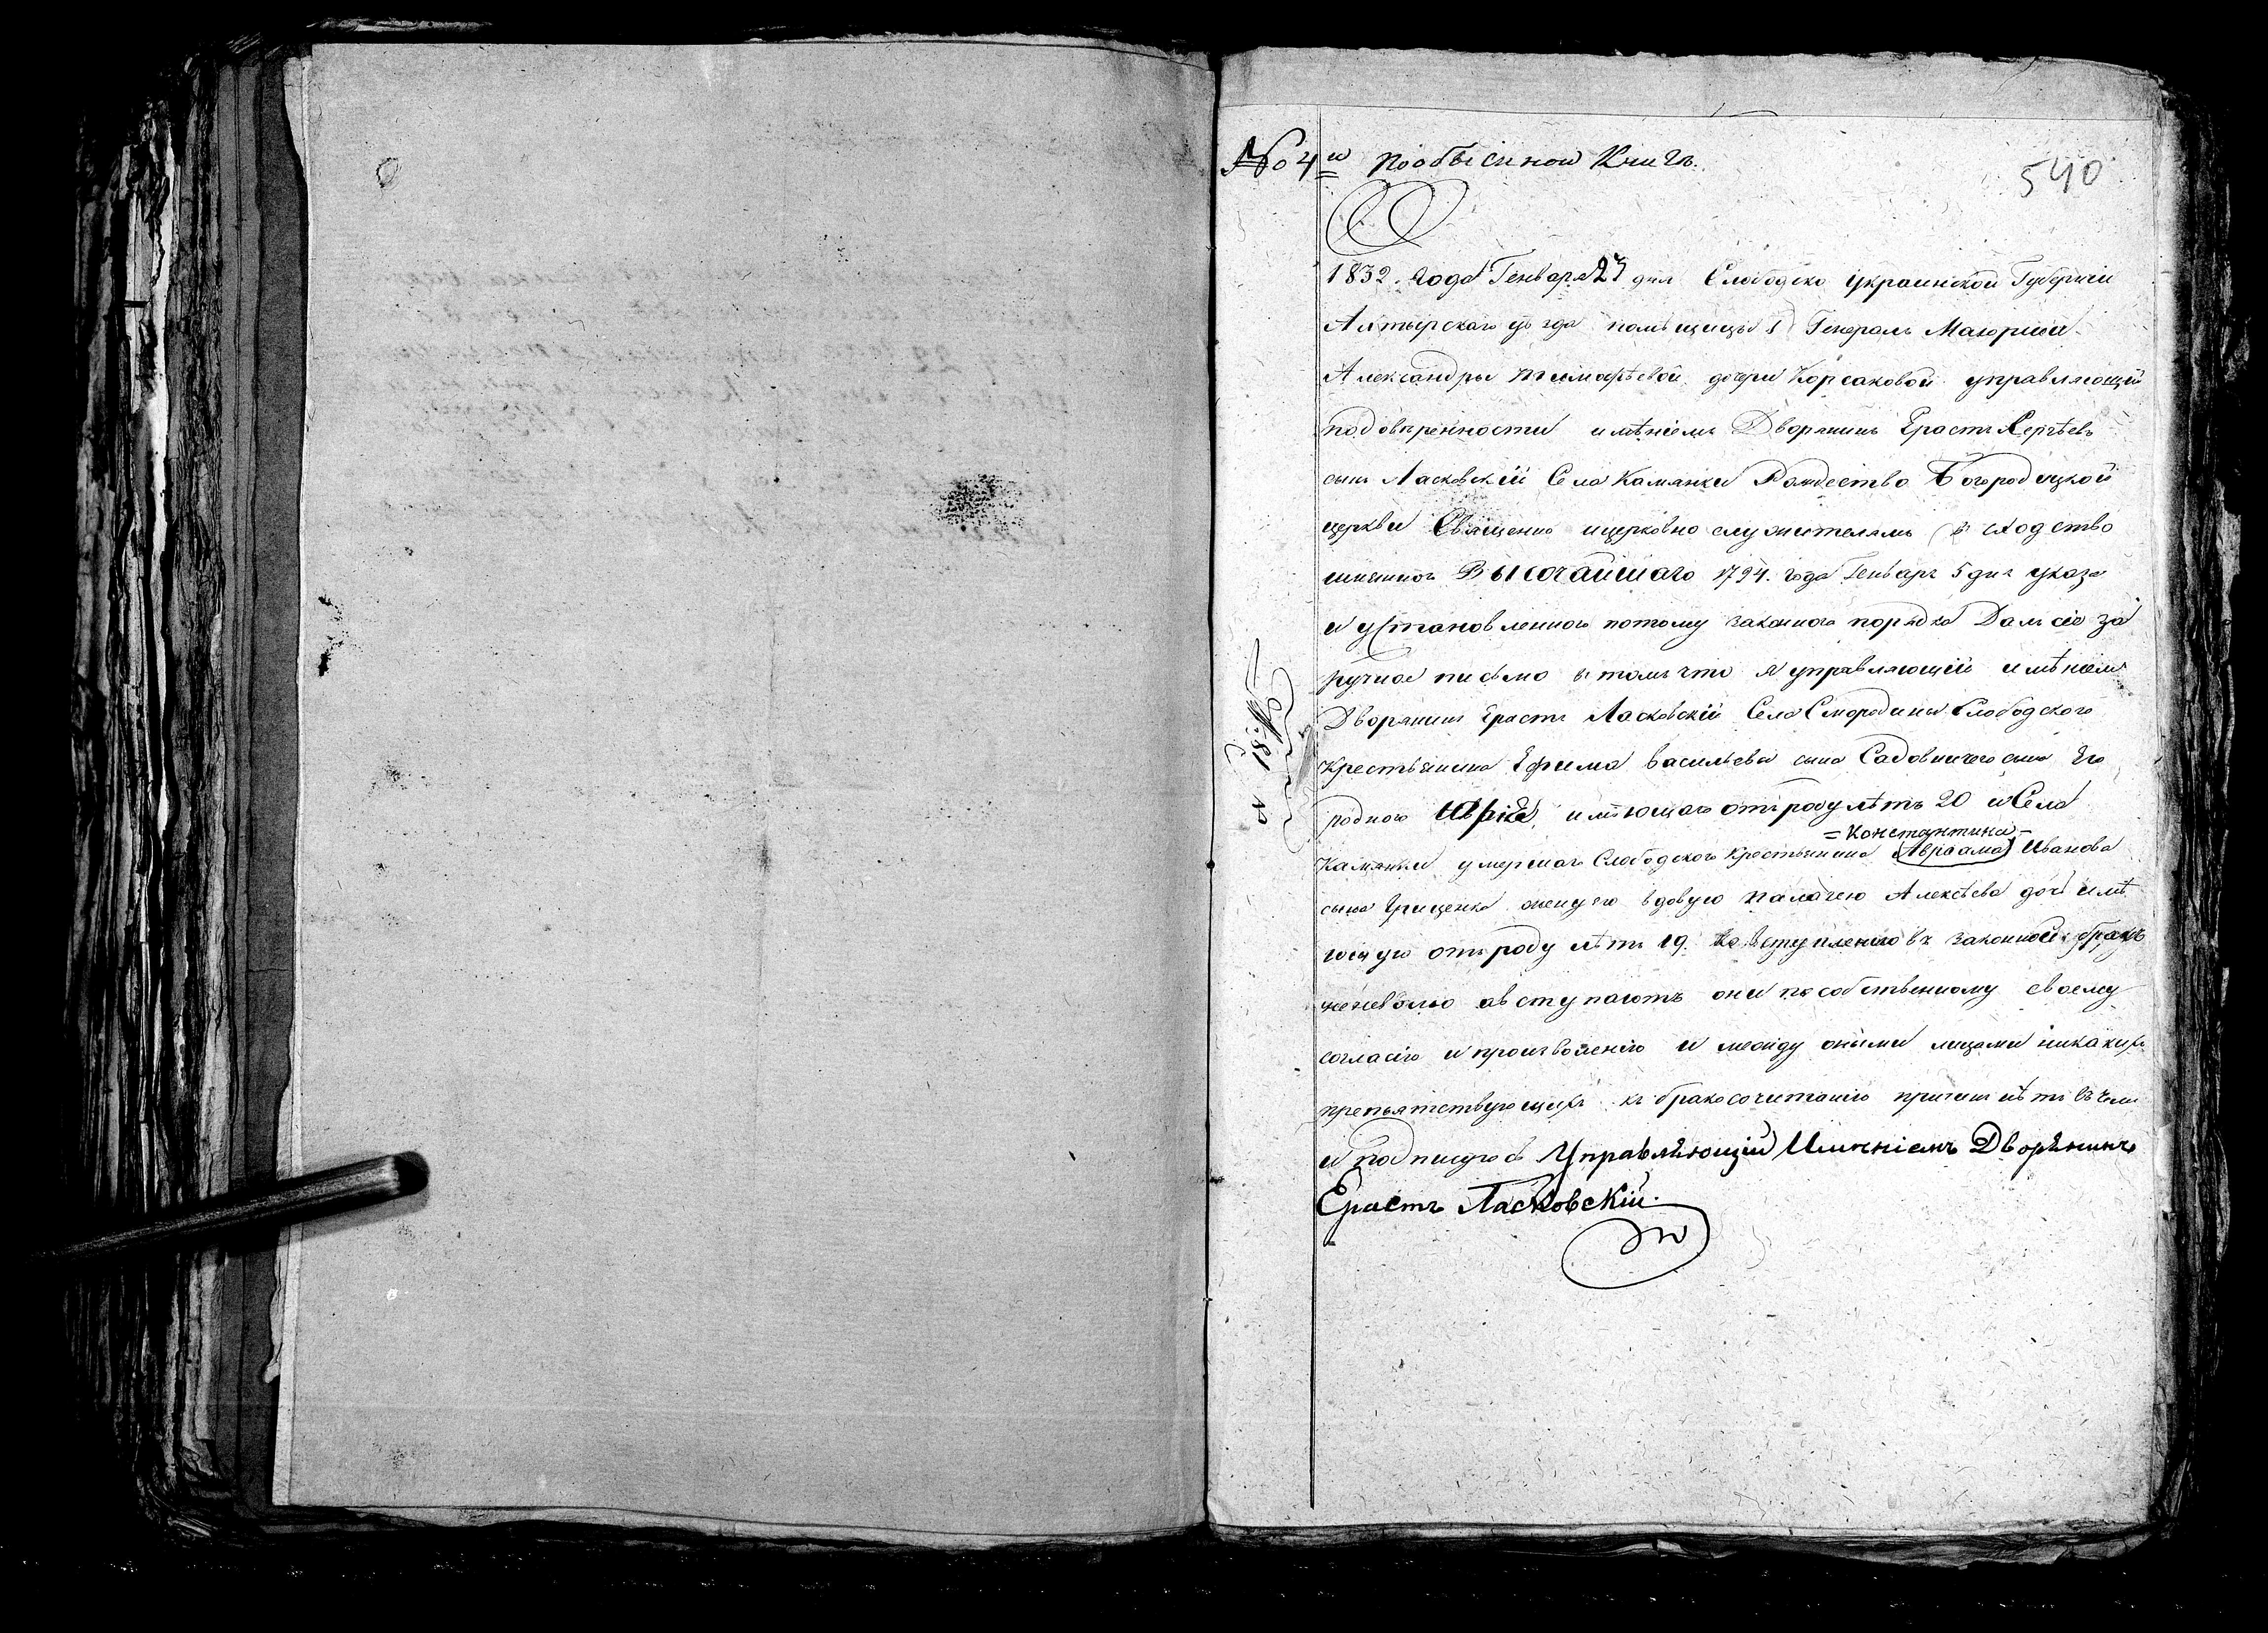 № 4й по обыскной Книгѣ.
540
1832. года Генваря 27 дня Слободско Украинской Губерніи
Ахтырскаго уѣзда помѣщицы Генералъ Маіорши
Александры дочери Корсаковой управляющій
по довѣренности имѣніемъ Дворянинъ Ерастъ Сергѣевъ
сынъ Ласковскій Села Камянки Рождество Богородицкой
церкви Священно и церковно служителямъ въ сходство
Высочайшаго 1794. года Генваря 5 дня указа
и установленного по тому законного порядка Далъ сію за
ручное письмо въ томъ что я управляющій имѣніемъ
Дворянинъ Ерастъ Ласковскій Села Смородины Слободского
Крестьянина Ефима Васильева сына Садовничего сына Его
родного имѣющаго отъ роду лѣтъ 20 и Села
= Константина =
Камянки умершаго Слободского Крестьянина (Авраама) Иванова
сына Гриценка жену его вдовую Палагею Алексѣева дочь имѣ
ющую отъ роду лѣтъ 19. ко вступленію въ законной бракъ
не неволю а вступаютъ они по собственному своему
согласію и произволенію и между оными лицами никакихъ
препятствующихъ къ бракосочитанію причинъ нѣтъ въ чемъ
и подписуюсь Управляющій Имѣніемъ Дворянинъ
Ерастъ Ласковскій.